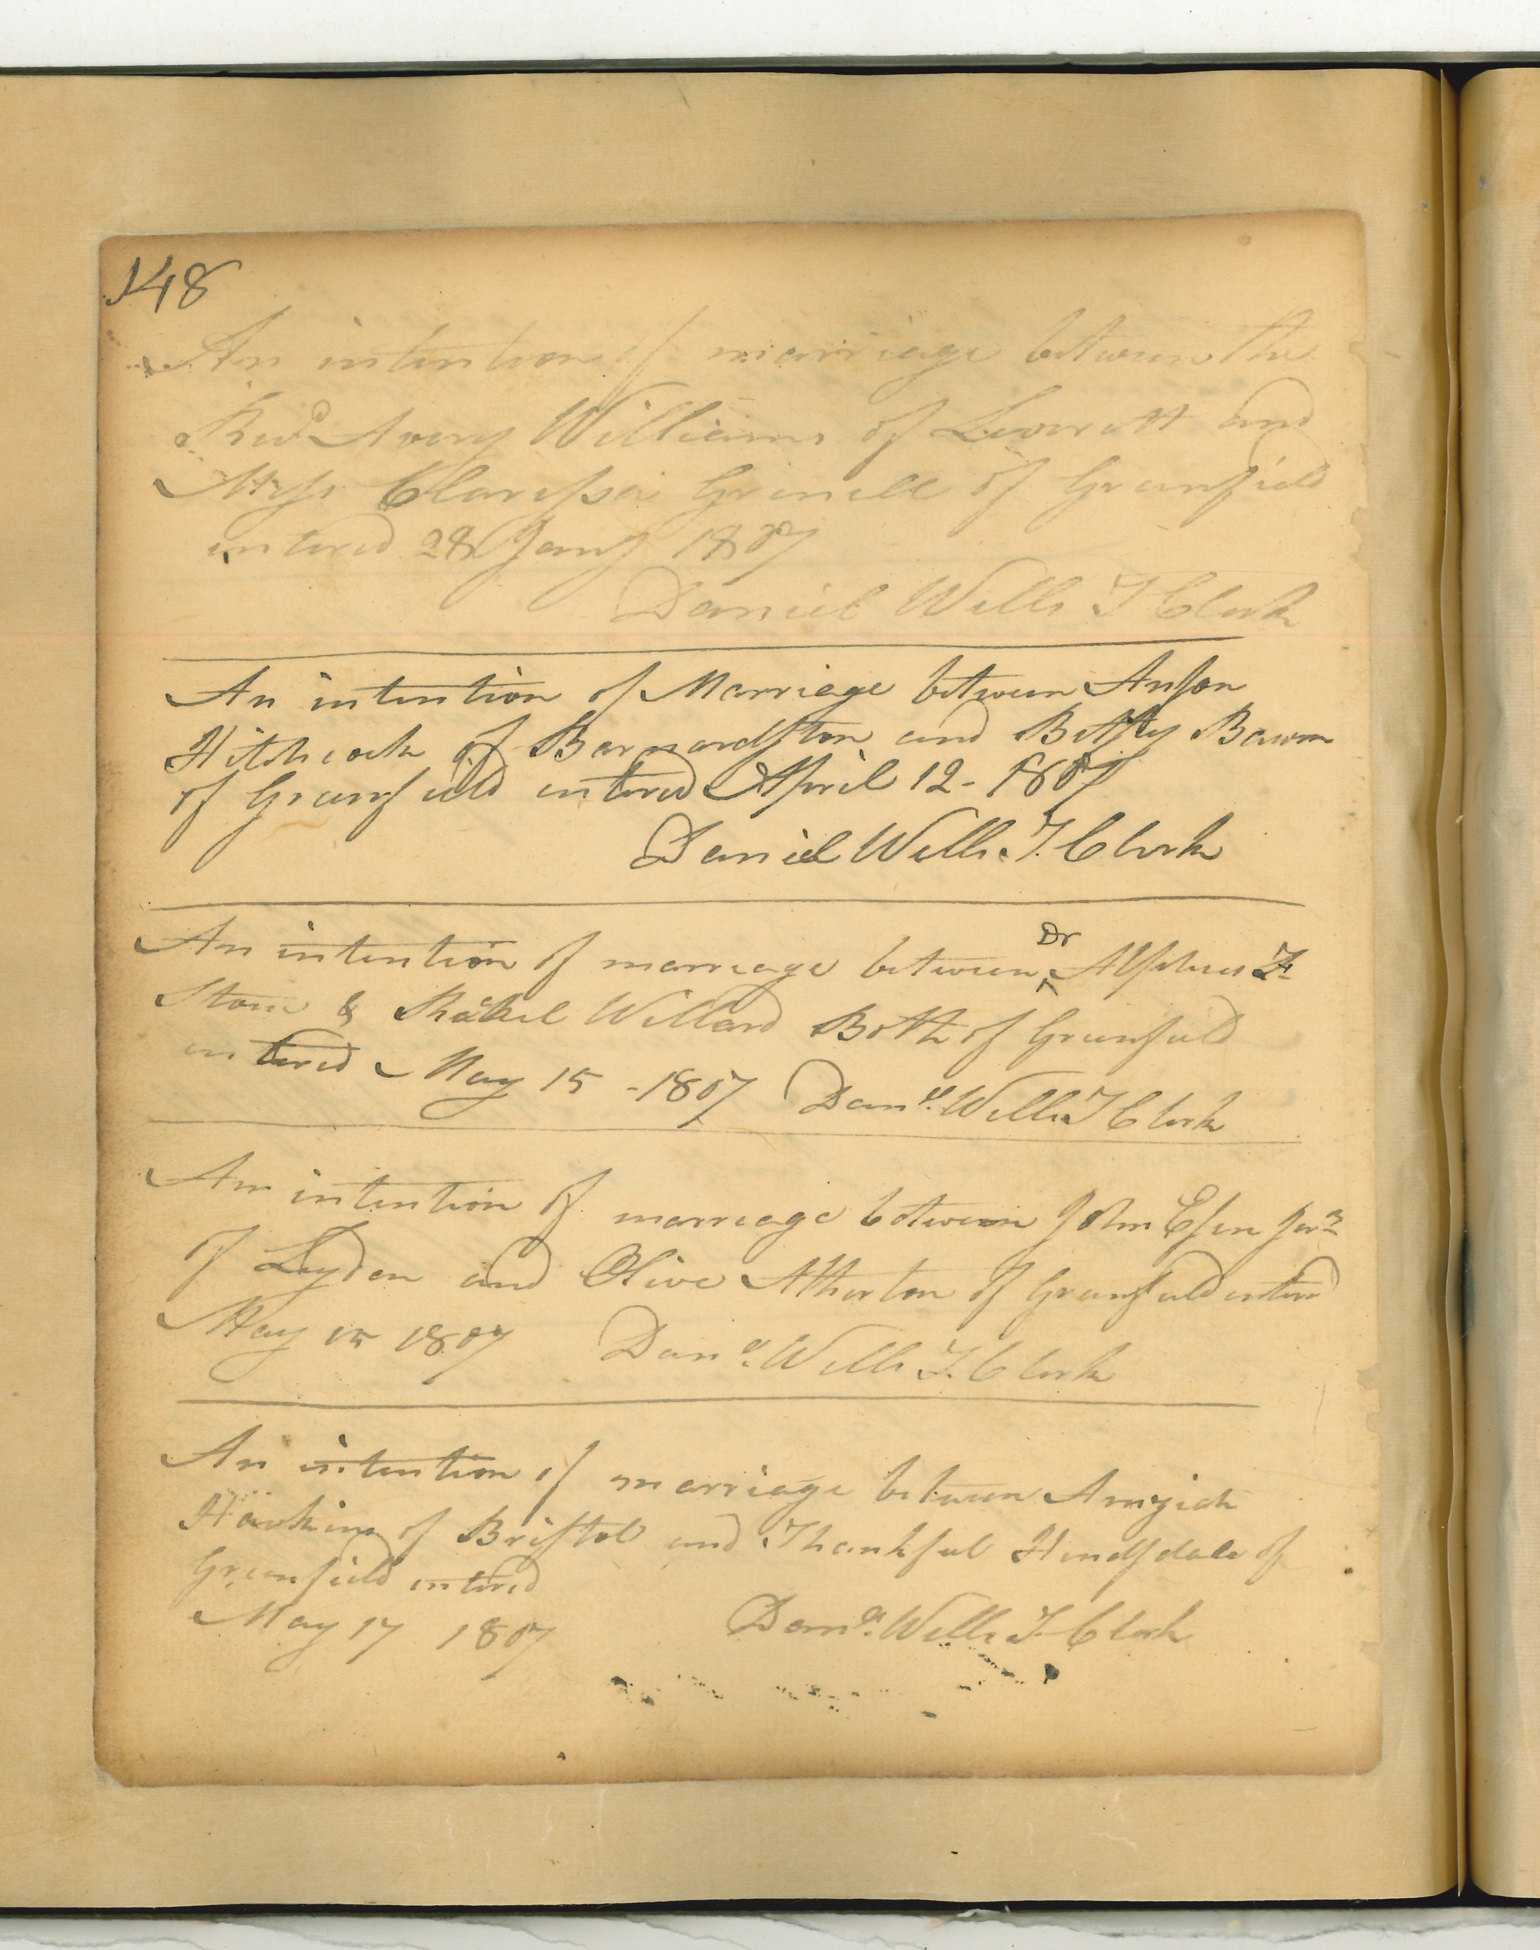 148
An intention of marriage between the
Revd Avery Williams of Leverett and
Miss Clarissa Grinell of Greenfield
entered 28 Jany 1807
Daniel Wells T Clerk
An intention of Marriage between Anson
Hitchcock of Barnardston and Betsy
of Greenfield entered April 12 - 1807
Daniel Wells T. Clerk
An intention of marriage between Dr Alpheus F
Stone & Rachel Willard Both of Greenfield
entered May 15 - 1807 Danll. Wells T Clerk
An intention of marriage between John Esen Junr
of Leyden and Olive Atherton of Greenfield entered
May 15 1807 Danll. Wells T. Clerk
An intention of marriage between
Hawkins of Bristol and Thankful Hindsdale of
Greenfield entered
May 17 1807 Danll. Wells T. Clerk